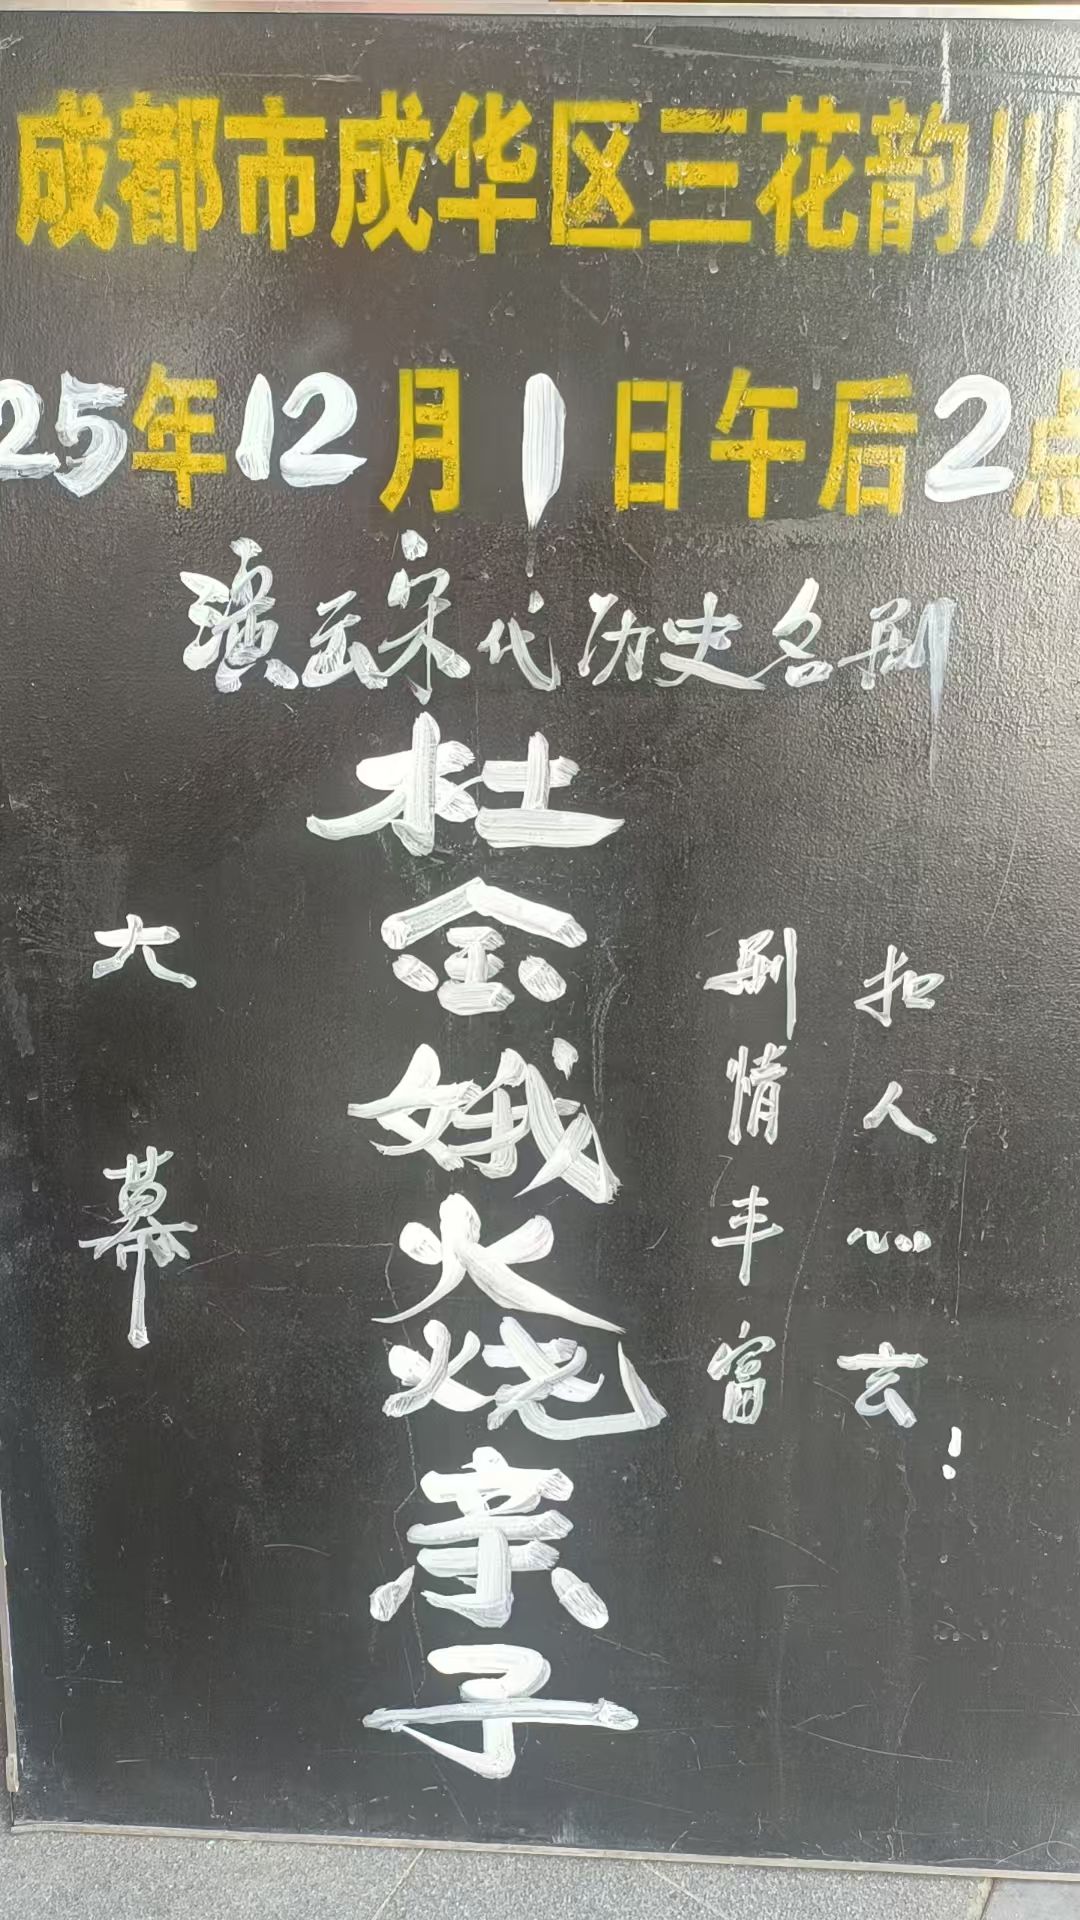 成都市成华区三花韵川
25年12月1日午后2点
演云宋代历史名剧
杜金娥火烧亲子
剧情丰富
扣人心玄!
大幕